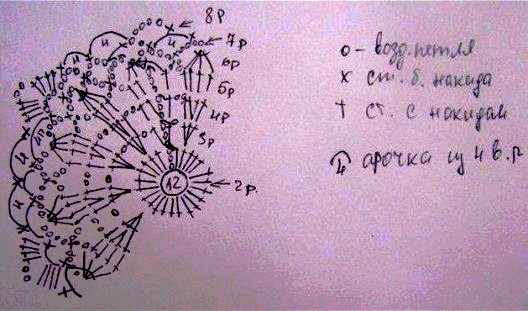 8р
7р
6р
5р
4р
3р
2р.
12
4
4
4
4
4
2р
о - возд. петля
х ст. б. накида
† ст. с накидом
4 арочка из 4 в.р